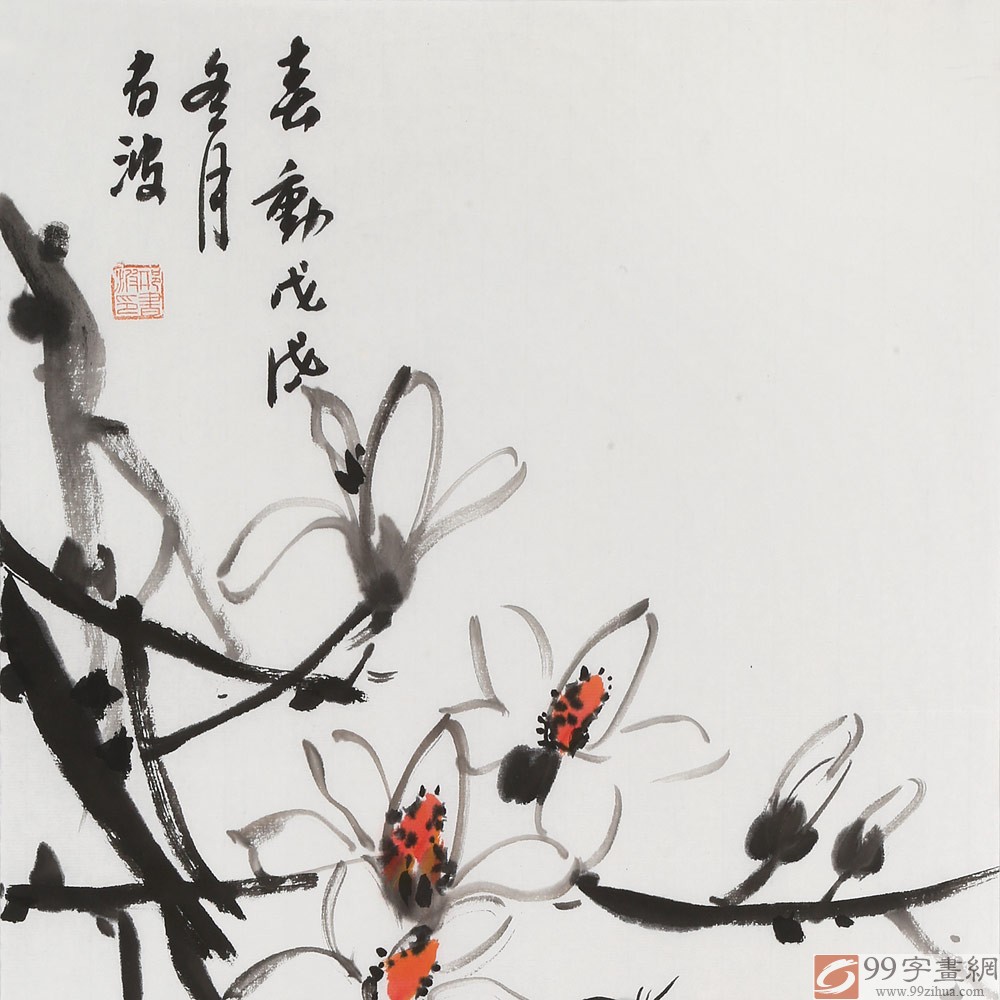 春動戊戌
冬月
書波
99字畫網
www.99zihua.com